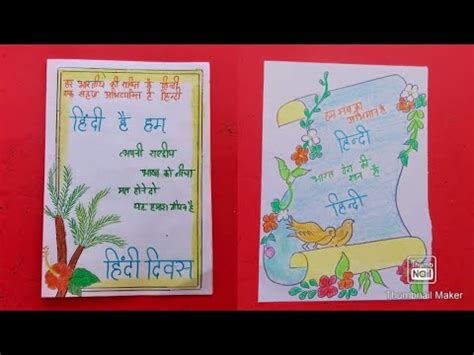 हर भारतीय की शक्ति है हिन्दी,
एक सहज अभिव्यक्ति है हिन्दी
हिंदी है हम
अपनी राष्ट्रीय
भाषा को नीचा
मत होने दो
यह हमारा है
हिंदी दिवस
हम सब का
अभिमान है
हिन्दी
भारत देश की
शान है
हिन्दी
Thumb
Nail
Thumbnail Maker